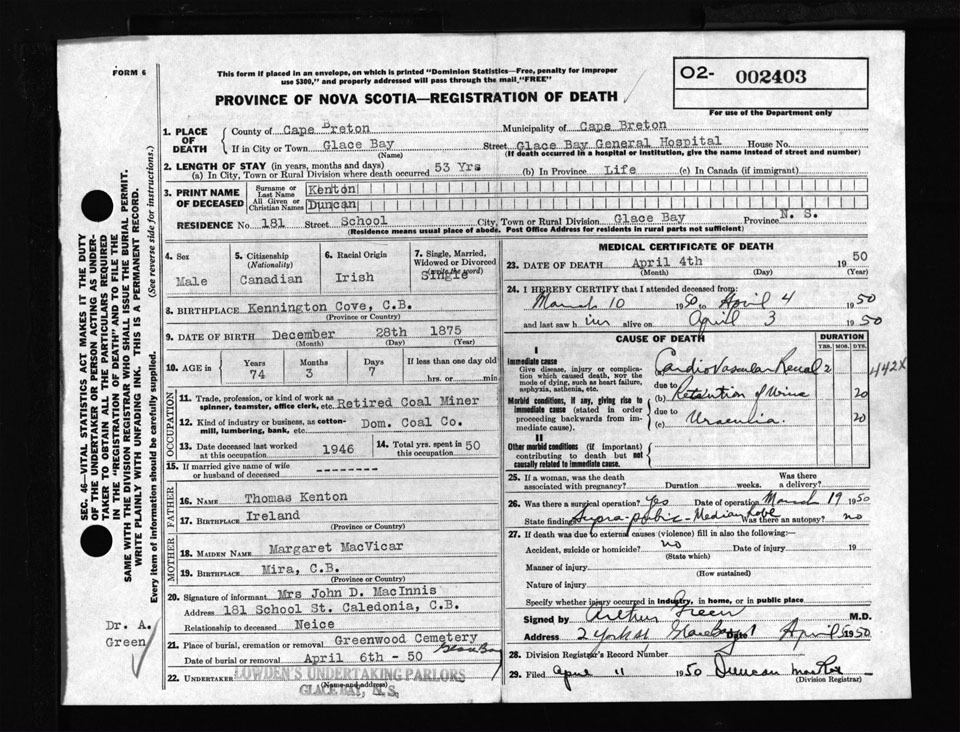 FORM 6
This form if placed in an envelope, on which is printed "Dominion Statistics—Free, penalty for improper
use $300," and properly addressed will pass through the mail, "FREE"
PROVINCE OF NOVA SCOTIA—REGISTRATION OF DEATH
O2- 002403
For use of the Department only
SEC. 46—VITAL STATISTICS ACT MAKES IT THE DUTY
OF THE UNDERTAKER OR PERSON ACTING AS UNDER-
TAKER TO OBTAIN ALL THE PARTICULARS REQUIRED
IN THE "REGISTRATION OF DEATH" AND TO FILE THE
SAME WITH THE DIVISION REGISTRAR WHO SHALL ISSUE THE BURIAL PERMIT.
WRITE PLAINLY WITH UNFADING INK. THIS IS A PERMANENT RECORD.
Every item of information should be carefully supplied. (See reverse side for instructions.)
1. PLACE OF DEATH
County of Cape Breton Municipality of Cape Breton
If in City or Town Glace Bay Street Glace Bay General Hospital House No.
(Name) (If death occurred in a hospital or institution, give the name instead of street and number)
2. LENGTH OF STAY (in years, months and days)
(a) In City, Town or Rural Division where death occurred 53 Yrs (b) In Province Life (c) In Canada (if immigrant)
3. PRINT NAME OF DECEASED
Surname or Last Name Kenton
All Given or Christian Names Duncan
RESIDENCE No. 181 Street School City, Town or Rural Division Glace Bay Province N. S.
(Residence means usual place of abode. Post Office Address for residents in rural parts not sufficient)
4. Sex Male
5. Citizenship (Nationality) Canadian
6. Racial Origin Irish
7. Single, Married, Widowed or Divorced (write the word) Single
8. BIRTHPLACE Kennington Cove, C.B.
(Province or Country)
9. DATE OF BIRTH December 28th 1875
(Month) (Day) (Year)
10. AGE in Years 74 Months 3 Days 7 If less than one day old hrs. or min.
OCCUPATION
11. Trade, profession, or kind of work as spinner, teamster, office clerk, etc. Retired Coal Miner
12. Kind of industry or business, as cotton-mill, lumbering, bank, etc. Dom. Coal Co.
13. Date deceased last worked at this occupation 1946
14. Total yrs. spent in this occupation 50
15. If married give name of wife or husband of deceased --------
FATHER
16. NAME Thomas Kenton
17. BIRTHPLACE Ireland
(Province or Country)
MOTHER
18. MAIDEN NAME Margaret MacVicar
19. BIRTHPLACE Mira, C.B.
(Province or Country)
20. Signature of informant Mrs John D. MacInnis
Address 181 School St. Caledonia, C.B.
Relationship to deceased Neice
21. Place of burial, cremation or removal Greenwood Cemetery
Glace Bay
Date of burial or removal April 6th - 50
22. UNDERTAKER LOWDEN'S UNDERTAKING PARLORS
(Name and address)
GLACE BAY, N. S.
Dr. A.
Green
MEDICAL CERTIFICATE OF DEATH
23. DATE OF DEATH April 4th 1950
(Month) (Day) (Year)
24. I HEREBY CERTIFY that I attended deceased from:
March 10 1950 to April 4 1950
and last saw him alive on April 3 1950
CAUSE OF DEATH DURATION
YRS. MOS. DYS.
I
Immediate cause
Give disease, injury or complication which caused death, NOT the mode of dying, such as heart failure, asphyxia, asthenia, etc.
Cardiovascular Renal 2
442X
Morbid conditions, if any, giving rise to immediate cause (stated in order proceeding backwards from immediate cause).
due to
(b) Retention of Urine 20
due to
(c) Uraemia. 20
II
Other morbid conditions (if important) contributing to death but not causally related to immediate cause.
25. If a woman, was the death associated with pregnancy? Duration weeks. Was there a delivery?
26. Was there a surgical operation? Yes Date of operation March 19 1950
State findings Supra-pubic - Median Lobe Was there an autopsy? no
27. If death was due to external causes (violence) fill in also the following:—
Accident, suicide or homicide? no Date of injury 19
(State which)
Manner of injury
(How sustained)
Nature of injury
Specify whether injury occurred in industry, in home, or in public place
Signed by Arthur Green M.D.
Address 2 York St Glace Bay Date April 5 1950
28. Division Registrar's Record Number
29. Filed April 11 1950 Duncan MacRae
(Division Registrar)